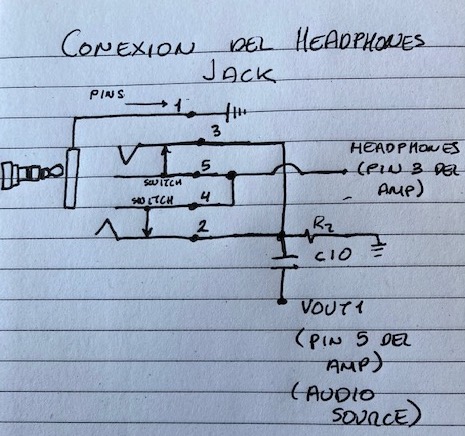 CONEXION DEL HEADPHONES
JACK
PINS
1
3
5
SWITCH
SWITCH
4
2
HEADPHONES
(PIN 3 DEL
AMP)
R2
C10
VOUT1
(PIN 5 DEL
AMP)
(AUDIO
SOURCE)